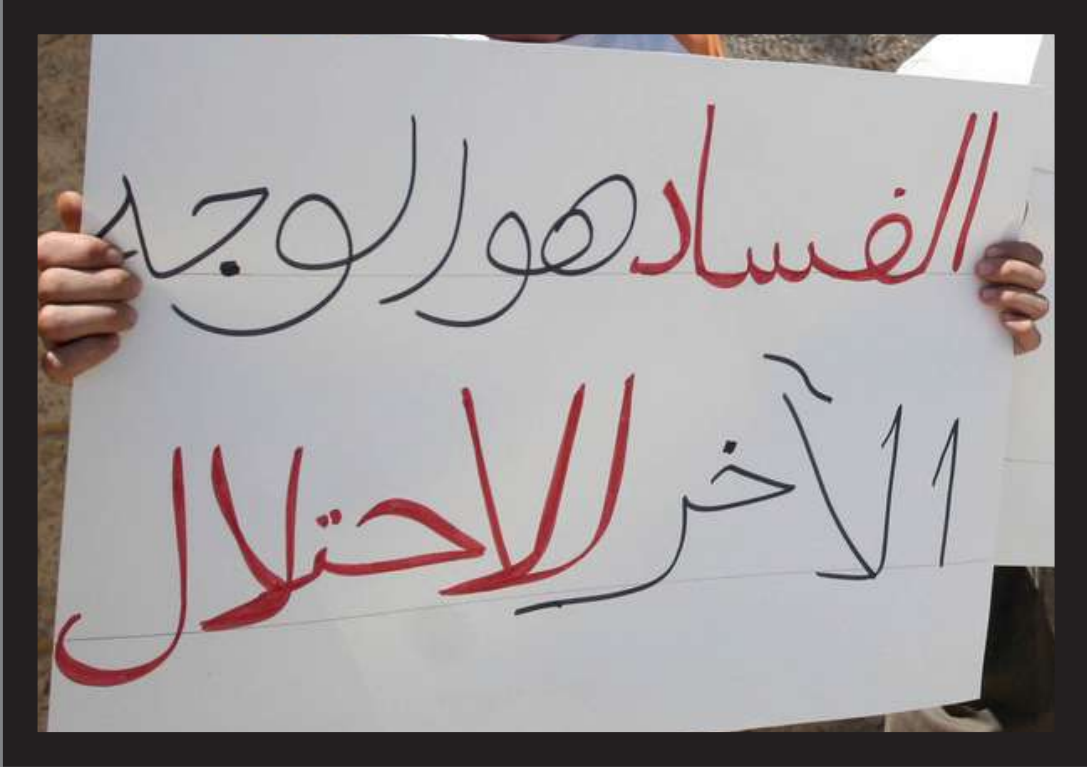 الفساد هو الوجه
الآخر للاحتلال